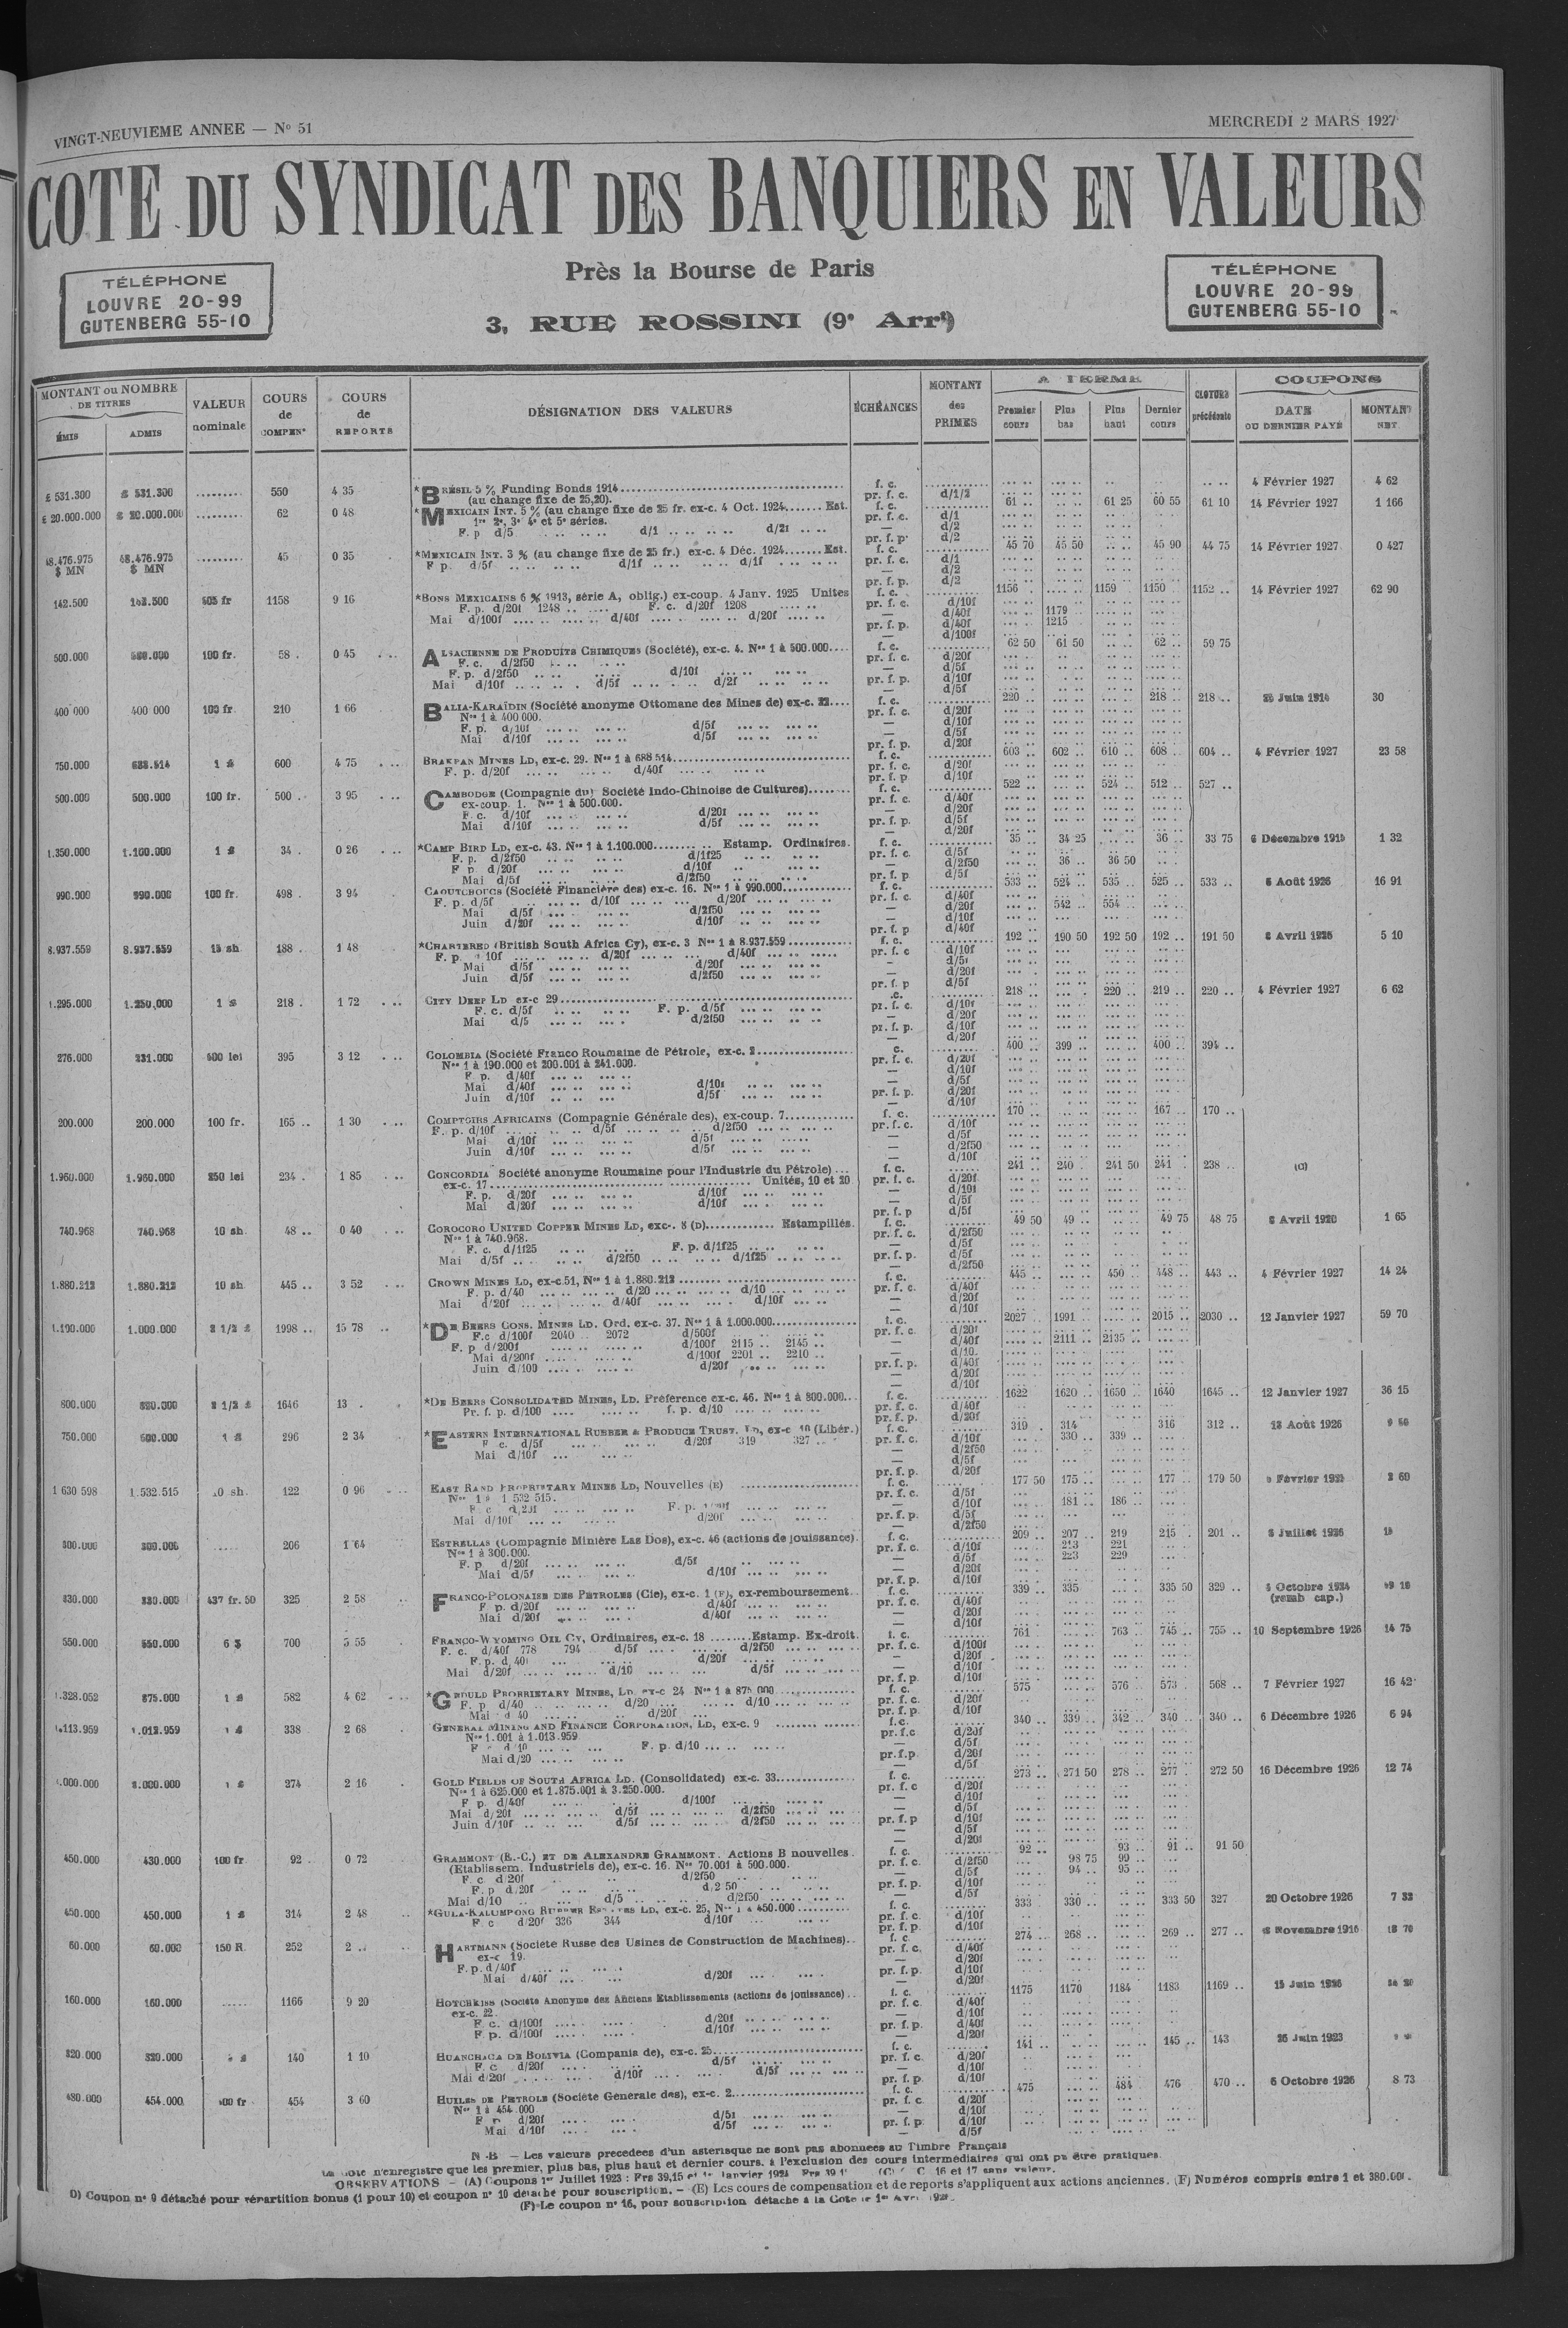 VINGT-NEUVIEME ANNEE — N° 51
MERCREDI 2 MARS 1927
COTE DU SYNDICAT DES BANQUIERS EN VALEURS
TÉLÉPHONE
LOUVRE 20-99
GUTENBERG 55-10
Près la Bourse de Paris
3, RUE ROSSINI (9e Arrt)
TÉLÉPHONE
LOUVRE 20-99
GUTENBERG 55-10
MONTANT ou NOMBRE DE TITRES
ÉMIS ADMIS
VALEUR nominale
COURS de COMPENon
COURS de REPORTS
DÉSIGNATION DES VALEURS
ÉCHÉANCES
MONTANT des PRIMES
A TERME
Premier cours
Plus bas
Plus haut
Dernier cours
CLOTURE précédente
COUPONS
DATE OU DERNIER PAYÉ
MONTANT NET
£ 531.300 £ 531.300 ......... 550 4 35 *BRÉSIL 5 % Funding Bonds 1914 f. c. 4 Février 1927 4 62
(au change fixe de 25,20). pr. f. c. d/1/2
£ 20.000.000 £ 20.000.000 ......... 62 0 48 *MEXICAIN INT. 5 % (au change fixe de 25 fr. ex-c. 4 Oct. 1924 Est. f. c. 61 .. 61 25 60 55 61 10 14 Février 1927 1 166
1re 2e, 3e 4e et 5e séries. pr. f. c. d/1
F. p d/5 d/1 d/2f — d/2
pr. f. p. d/2
48.476.975 $ MN 48.476.975 $ MN ......... 45 0 35 *MEXICAIN INT. 3 % (au change fixe de 25 fr.) ex-c. 4 Déc. 1924 Est. f. c. 45 70 45 50 45 90 44 75 14 Février 1927 0 427
F p. d/5f d/1f d/1f pr. f. c. d/1
— d/2
pr. f. p. d/2
142.500 142.500 505 fr 1158 9 16 *BONS MEXICAINS 6 % 1913, série A, oblig.) ex-coup. 4 Janv. 1925 Unites f. c. 1156 1159 1150 1152 .. 14 Février 1927 62 90
F. p. d/20f 1248 F. c. d/20f 1208 pr. f. c. d/10f
Mai d/100f d/40f d/20f — d/40f 1179
pr. f. p. d/40f 1215
— d/100f
500.000 500.000 100 fr. 58 . 0 45 ALSACIENNE DE PRODUITS CHIMIQUES (Société), ex-c. 4. Nos 1 à 500.000 f. c. 62 50 61 50 62 .. 59 75
F. c. d/2f50 pr. f. c. d/20f
F. p. d/2f50 d/10f — d/5f
Mai d/10f d/5f d/2f pr. f. p. d/10f
— d/5f
400 000 400 000 100 fr. 210 1 66 BALIA-KARAÏDIN (Société anonyme Ottomane des Mines de) ex-c. 22 f. c. 220 218 .. 218 .. 26 Juin 1914 30
Nos 1 à 400 000. pr. f. c. d/20f
F. p. d/10f d/5f — d/10f
Mai d/10f d/5f — d/5f
pr. f. p. d/20f
750.000 688.514 1 £ 600 4 75 BRAKPAN MINES LD, ex-c. 29. Nos 1 à 688 514 f. c. 603 .. 602 .. 610 .. 608 .. 604 .. 4 Février 1927 23 58
F. p. d/20f d/40f pr. f. c. d/20f
pr. f. p d/10f
500.000 500.000 100 fr. 500 . 3 95 CAMBODGE (Compagnie du) Société Indo-Chinoise de Cultures) f. c. 522 .. 524 .. 512 .. 527 ..
ex-coup. 1. Nos 1 à 500.000. pr. f. c. d/40f
F. c. d/10f d/20f — d/20f
Mai d/10f d/5f pr. f. p. d/5f
— d/20f
1.350.000 1.100.000 1 £ 34 . 0 26 *CAMP BIRD LD, ex-c. 43. Nos 1 à 1.100.000 Estamp. Ordinaires. f. c. 35 34 25 36 .. 33 75 6 Décembre 1915 1 32
F. p. d/2f50 d/1f25 pr. f. c. d/5f
F p. d/20f d/10f — d/2f50 36 .. 36 50
Mai d/5f d/2f50 pr. f. p d/5f
990.000 990.000 100 fr. 498 . 3 94 CAOUTCHOUCS (Société Financière des) ex-c. 16. Nos 1 à 990.000 f. c. 533 .. 524 .. 535 .. 525 .. 533 .. 5 Août 1926 16 91
F. p. d/5f d/10f d/20f pr. f. c. d/40f
Mai d/5f d/2f50 — d/20f 542 .. 554 ..
Juin d/20f d/10f — d/10f
pr. f. p d/40f
8.937.559 8.937.559 15 sh 188 . 1 48 *CHARTERED (British South Africa Cy), ex-c. 3 Nos 1 à 8.937.559 f. c. 192 .. 190 50 192 50 192 .. 191 50 8 Avril 1926 5 10
F. p. d 10f d/20f d/40f pr. f. c d/10f
Mai d/5f d/20f — d/5f
Juin d/5f d/2f50 — d/20f
pr. f. p d/5f
1.295.000 1.250.000 1 £ 218 . 1 72 CITY DEEP LD ex-c 29 .c. 218 .. 220 .. 219 .. 220 .. 4 Février 1927 6 62
F. c. d/5f F. p. d/5f pr. f. c. d/10f
Mai d/5 d/2f50 — d/20f
pr. f. p. d/10f
— d/20f
276.000 231.000 500 lei 395 3 12 COLOMBIA (Société Franco Roumaine de Pétrole, ex-c. 2 c. 400 .. 399 .. 400 .. 394 ..
Nos 1 à 190.000 et 200.001 à 241.000. pr. f. c. d/20f
F p. d/40f — d/10f
Mai d/40f d/10f — d/5f
Juin d/10f d/5f pr. f. p. d/20f
— d/10f
200.000 200.000 100 fr. 165 .. 1 30 COMPTOIRS AFRICAINS (Compagnie Générale des), ex-coup. 7 f. c. 170 .. 167 .. 170 ..
F. p. d/10f d/5f d/2f50 pr. f. c. d/10f
Mai d/10f d/5f — d/5f
Juin d/10f d/5f — d/2f50
— d/10f
1.960.000 1.960.000 250 lei 234 . 1 85 CONCORDIA Société anonyme Roumaine pour l'Industrie du Pétrole) f. c. 241 .. 240 . 241 50 241 . 238 .. (C)
ex-c. 17 Unités, 10 et 20 pr. f. c. d/20f
F. p. d/20f d/10f — d/10f
Mai d/20f d/10f — d/5f
pr. f. p d/5f
740.968 740.968 10 sh. 48 .. 0 40 COROCORO UNITED COPPER MINES LD, exc-. 8 (D) Estampillés. f. c. 49 50 49 .. 49 75 48 75 6 Avril 1920 1 65
Nos 1 à 740.968. pr. f. c. d/2f50
F. c. d/1f25 F. p. d/1f25 — d/5f
Mai d/5f d/2f50 d/1f25 pr. f. p. d/5f
— d/2f50
1.880.212 1.880.212 10 sh. 445 .. 3 52 CROWN MINES LD, ex-c.51, Nos 1 à 1.880.212 f. c. 445 450 .. 448 .. 443 .. 4 Février 1927 14 24
F. p. d/40 d/20 d/10 pr. f. c. d/40f
Mai d/20f d/40f d/10f — d/20f
— d/10f
1.190.000 1.000.000 2 1/2 £ 1998 .. 15 78 *DE BEERS CONS. MINES LD. Ord. ex-c. 37. Nos 1 à 1.000.000 f. c. 2027 1991 2015 .. 2030 .. 12 Janvier 1927 59 70
F.c d/100f 2040 .. 2072 d/500f pr. f. c. d/20f
F. p d/200f d/100f 2115 .. 2145 .. — d/40f 2111 .. 2135 ..
Mai d/200f d/100f 2201 .. 2210 .. — d/10.
Juin d/100 d/20f pr. f. p. d/40f
— d/20f
— d/10f
800.000 1646 13 . *DE BEERS CONSOLIDATED MINES, LD. Préférence ex-c. 46. Nos 1 à 800.000 f. c. 1622 1620 .. 1650 .. 1640 1645 .. 12 Janvier 1927 36 15
Pr. f. p. d/100 f. p. d/10 pr. f. c. d/40f
pr. f. p. d/20f
750.000 500.000 1 £ 296 2 34 *EASTERN INTERNATIONAL RUBBER & PRODUCE TRUST. LD, ex-c 10 (Libér.) f. c. 319 . 314 316 312 .. 13 Août 1926
F c. d/5f d/20f 319 327 pr. f. c. d/10f 330 .. 339 ..
Mai d/10f — d/2f50
— d/5f
pr. f. p. d/20f
1 630 598 1.532.515 10 sh. 122 0 96 EAST RAND PROPRIETARY MINES LD, Nouvelles (E) f. c. 177 50 175 .. 177 .. 179 50
Nos 1 à 1 532 515. pr. f. c. d/5f
F c d/20f F. p. — d/10f 181 .. 186 ..
Mai d/10f d/20f pr. f. p. d/5f
— d/2f50
300.000 300.000 206 1 64 ESTRELLAS (Compagnie Minière Las Dos), ex-c. 46 (actions de jouissance). f. c. 209 .. 207 .. 219 215 . 201 .. 8 Juillet 1926
Nos 1 à 300.000. pr. f. c. d/10f 213 221
F. p d/20f d/5f — d/5f 223 229
Mai d/5f d/10f — d/20f
pr. f. p. d/10f
330.000 330.000 437 fr. 50 325 2 58 FRANCO-POLONAISE DES PETROLES (Cie), ex-c. 1 (F), ex-remboursement f. c. 339 .. 335 335 50 329 .. 4 Octobre 1924
(remb cap.)
F p. d/20f d/40f pr. f. c. d/40f
Mai d/20f d/40f — d/20f
— d/10f
550.000 550.000 6 $ 700 5 55 FRANCO-WYOMING OIL CY, Ordinaires, ex-c. 18 Estamp. Ex-droit. f. c. 761 763 .. 745 .. 755 .. 10 Septembre 1926 14 75
F. c. d/40f 778 794 d/5f d/2f50 pr. f. c. d/100f
F. p. d/40f d/20f — d/20f
Mai d/20f d/10 d/5f — d/10f
pr. f. p. d/10f
1.328.052 875.000 1 £ 582 4 62 *GEDULD PROPRIETARY MINES, LD. ex-c 24 Nos 1 à 875 000 f. c. 575 576 573 568 .. 7 Février 1927 16 42
F. p d/40 d/20 d/10 pr. f. c. d/20f
Mai d 40 d/20f pr. f. p. d/10f
1.113.959 1.013.959 1 £ 338 2 68 GENERAL MINING AND FINANCE CORPORATION, LD, ex-c. 9 f. c. 340 .. 339 .. 342 .. 340 .. 340 .. 6 Décembre 1926 6 94
Nos 1.001 à 1.013.959 pr. f.c d/20f
F c d 10 F. p. d/10 — d/5f
Mai d/20 pr. f.p d/20f
— d/5f
1 £ 274 2 16 GOLD FIELDS OF SOUTH AFRICA LD. (Consolidated) ex-c. 33 f. c. 273 .. 271 50 278 .. 277 .. 272 50 16 Décembre 1926 12 74
Nos 1 à 625.000 et 1.875.001 à 3.250.000. pr. f. c d/20f
F p. d/40f d/100f — d/10f
Mai d/20f d/5f d/2f50 — d/5f
Juin d/10f d/5f d/2f50 pr. f. p d/10f
— d/5f
— d/20f
450.000 430.000 100 fr 92 . 0 72 GRAMMONT (E.-C.) ET DE ALEXANDRE GRAMMONT. Actions B nouvelles. f. c. 92 .. 93 .. 91 .. 91 50
(Etablissem. Industriels de), ex-c. 16. Nos 70.001 à 500.000. pr. f. c. d/2f50 98 75 99 ..
F. c d/20f d/2f50 — d/5f 94 .. 95 ..
F. p d/20f d/2 50 pr. f. p. d/10f
Mai d/10 d/5 d/2f50 — d/5f
450.000 450.000 1 £ 314 2 48 *GULA-KALUMPONG RUBBER ESTATES LD, ex-c. 25, Nos 1 à 450.000 f. c. 333 330 .. 333 50 327 20 Octobre 1926 7 32
F c d/20f 336 344 d/10f pr. f. c. d/10f
pr. f. p. d/10f
60.000 60.000 150 R. 252 2 .. HARTMANN (Société Russe des Usines de Construction de Machines) f. c. 274 .. 268 .. 269 .. 277 .. Novembre 1916
ex-c 19. pr. f. c. d/40f
F. p. d/40f — d/20f
Mai d/40f d/20f pr. f. p. d/10f
— d/20f
160.000 160.000 ..... 1166 9 20 HOTCHKISS (Société Anonyme des Anciens Etablissements (actions de jouissance) f. c. 1175 1170 1184 1183 1169 .. 15 Juin 1926
ex-c. 22. pr. f. c. d/40f
F c. d/100f d/20f — d/10f
F p. d/100f d/10f pr. f. p. d/40f
— d/20f
320.000 320.000 140 1 10 HUANCHACA DE BOLIVIA (Compania de), ex-c. 25 f. c. 141 .. 145 .. 143 26 Juin 1923
F. c d/20f d/5f pr. f. c. d/20f
Mai d/20f d/10f d/5f — d/10f
pr. f. p. d/10f
480.000 454.000 100 fr 454 3 60 HUILES DE PETROLE (Société Générale des), ex-c. 2 f. c. 475 484 476 470 .. 6 Octobre 1926 8 73
Nos 1 à 454.000 pr. f. c d/20f
F p d/20f d/5f — d/10f
Mai d/10f d/5f pr. f. p d/10f
— d/5f
N.-B. — Les valeurs précédées d'un astérisque ne sont pas abonnées au Timbre Français
La Cote n'enregistre que les premier, plus bas, plus haut et dernier cours, à l'exclusion des cours intermédiaires qui ont pu être pratiqués.
OBSERVATIONS — (A) Coupons 1er Juillet 1923 : Frs 39,15 et 1er Janvier 1924 Frs 39 (C) C. 16 et 17 sans valeur.
D) Coupon n° 9 détaché pour répartition bonus (1 pour 10) et coupon n° 10 détaché pour souscription. — (E) Les cours de compensation et de reports s'appliquent aux actions anciennes. (F) Numéros compris entre 1 et 380.000.
(F) Le coupon n° 16, pour souscription détaché à la Cote le 1er Avril